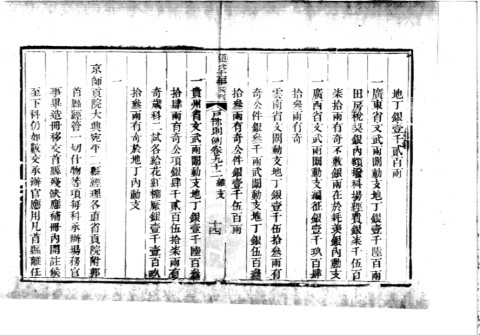 地丁銀壹千貳百兩
一廣東省文武兩闈動支地丁銀壹千陸百兩
田房稅契銀內額撥科場經費銀柒千伍百
柒拾兩有奇不敷銀兩在於耗羨銀內動支
一廣西省文武兩闈動支編徵銀壹千玖百肆
拾兩有奇
一雲南省文闈動支地丁銀壹千伍百叄兩有
奇公件銀叄千兩武闈動支地丁銀伍百叄
拾叄兩有奇公件銀壹千伍百兩
戶部則例卷九十二 雜支 十四
一貴州省文武兩闈動支地丁銀壹千陸百
拾肆兩有奇公項銀肆千貳百伍拾柒兩有
奇歲科二試各給花紅銀壹千壹百玖
拾叄兩有奇於地丁內動支
一
京師貢院大興宛平二縣經理各直省貢院附郭
首縣經管一切什物等項每科承辦場務官
事畢造冊移交首縣殘缺應補冊內開註候
至下科仍如數交承辦官應用凡首縣離任